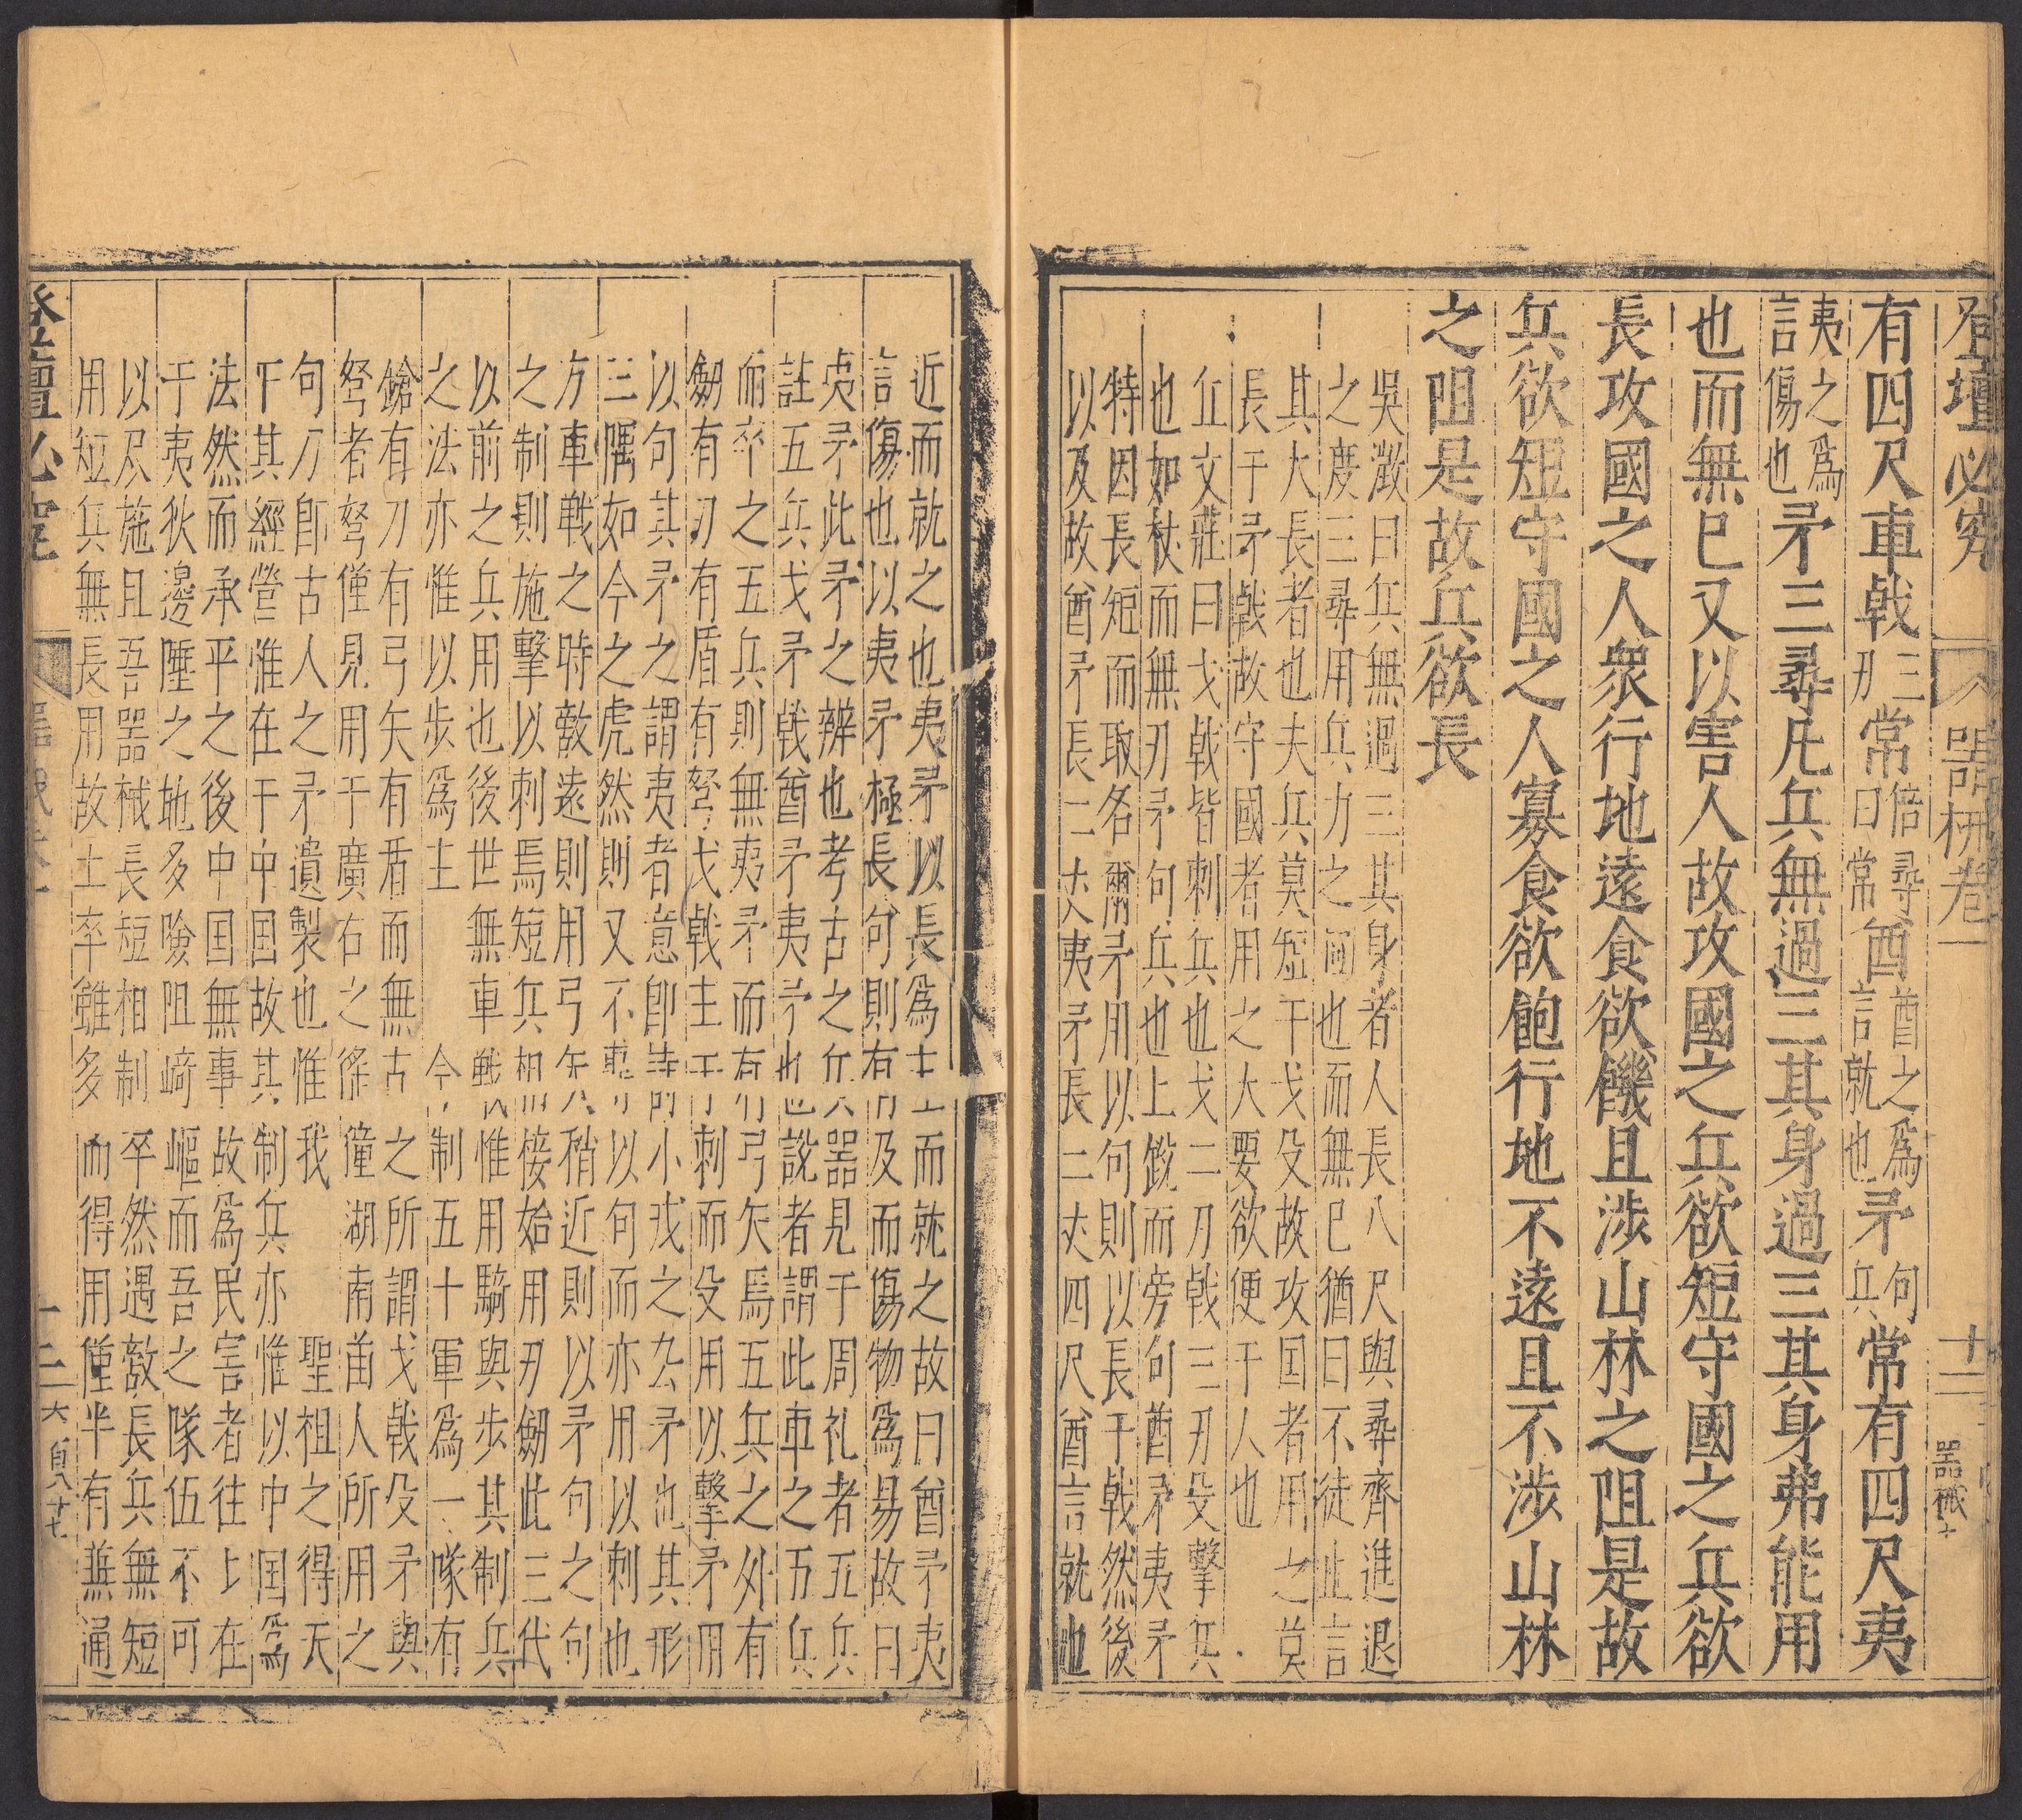 登壇必究 器械卷一 十二 器械十
有四尺車戟三刃常倍尋曰常酋酋之爲言就也矛句兵常有四尺夷
夷之爲言傷也矛三尋凡兵無過三其身過三其身弗能用
也而無已又以害人故攻國之兵欲短守國之兵欲
長攻國之人衆行地遠食欲饑且涉山林之阻是故
兵欲短守國之人寡食欲飽行地不遠且不涉山林
之阻是故兵欲長
吳澂曰兵無過三其身者人長八尺與尋齊進退
之度三尋用兵力之極也而無已猶曰不徒止言
其大長者也夫兵莫短于戈殳故攻囯者用之莫
長于矛戟故守國者用之大要欲便于人也
丘文莊曰戈戟皆刺兵也戈二刀戟三刃殳擊兵
也如杖而無刃矛句兵也上銳而旁句酋矛夷矛
特因長短而取名爾矛用以句則以長于戟然後
以及故酋矛長二丈夷矛長二丈四尺酋言就也
近而就之也夷矛以長爲主而就之故曰酋矛夷
言傷也以夷矛極長句則有及而傷物爲易故曰
夷矛此矛之辨也考古之兵器見于周礼者五兵
註五兵戈矛戟酋矛夷矛也說者謂此車之五兵
而卒之五兵則無夷矛而有弓矢焉五兵之外有
劒有刃有盾有弩戈戟主于刺而殳用以擊矛用
以句其矛之謂夷者意卽詩小戎之厹矛也其形
三隅如今之虎然則又不專以句而亦用以刺也
方車戰之時敵遠則用弓矢稍近則以矛句之句
之制則施擊以刺焉短兵相接始用刃劒此三代
以前之兵用也後世無車戰惟用騎與步其制兵
之法亦惟以步爲主　今制五十軍爲一隊有
鎗有刀有弓矢有盾而無古之所謂戈戟殳矛與
弩者弩僅見用于廣右之徭獞湖南苗人所用之
句刀卽古人之矛遺製也惟我　聖祖之得天
下其經營惟在于中囯故其制兵亦惟以中囯爲
法然而承平之後中囯無事故爲民害者往上在
于夷狄邊陲之地多險阻崎嶇而吾之隊伍不可
以尽施且吾器械長短相制卒然遇敵長兵無短
用短兵無長用故士卒雖多而得用僅半有兼通
登壇必究 器械卷一 十二 六百八十七